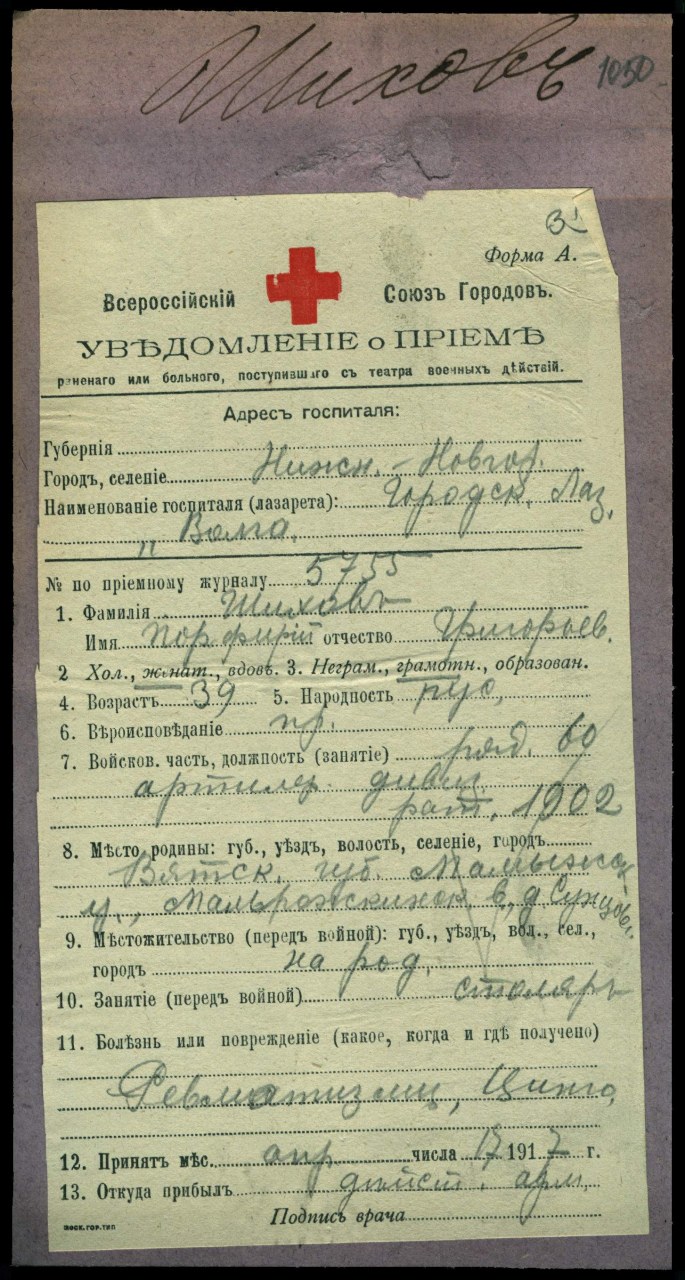 Шиховъ 1050
3
Форма А.
Всероссійскій Союзъ Городовъ.
УВѢДОМЛЕНІЕ о ПРІЕМѢ
раненаго или больного, поступившаго съ театра военныхъ дѣйствій.
Адресъ госпиталя:
Губернія
Городъ, селеніе Нижн.-Новгор.
Наименованіе госпиталя (лазарета): Городск. Лаз.
„Волга
№ по пріемному журналу 5755
1. Фамилія Шиховъ
Имя Порфирій отчество Григорьев.
2 Хол., женат., вдовъ. 3. Неграм., грамотн., образован.
4. Возрастъ 39 5. Народность рус,
6. Вѣроисповѣданіе пр.
7. Войсков. часть, должность (занятіе) ряд. 60
артилер. дивиз.
рат, 1902
8. Мѣсто родины: губ., уѣздъ, волость, селеніе, городъ
Вятск. губ. Малмыжск
у., в., д Сунцов
9. Мѣстожительство (передъ войной): губ., уѣздъ, вол., сел.,
городъ на род.
10. Занятіе (передъ войной) столяръ
11. Болѣзнь или поврежденіе (какое, когда и гдѣ получено)
Ревматизмъ, Цинга,
12. Принятъ мѣс. апр числа 17 1917 г.
13. Откуда прибылъ дѣйст. арм,
Подпись врача
МОСК.ГОР.ТИП